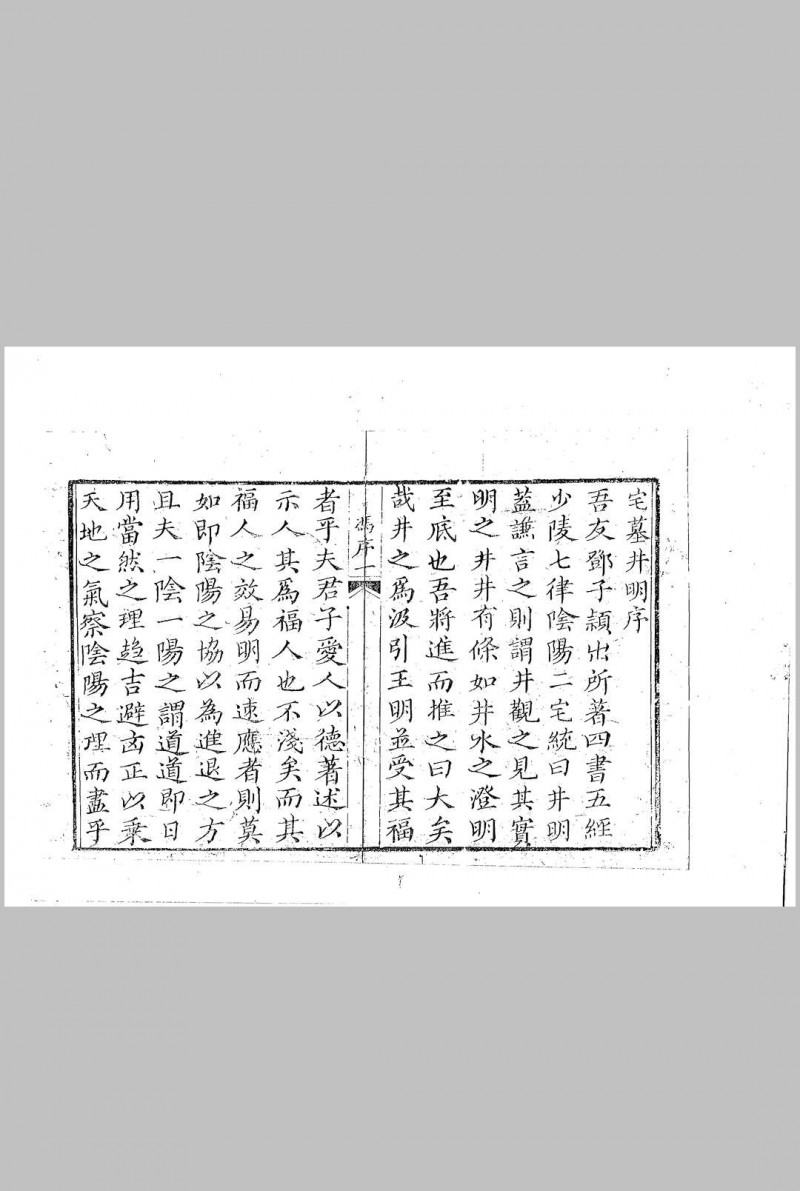 宅墓井明序
吾友鄧子頴出所著四書五經
少陵七律陰陽二宅統曰井明
葢謙言之則謂井觀之見其實
明之井井有條如井水之澄明
至底也吾將進而推之曰大矣
哉井之爲汲引王明並受其福
馮序 一
者乎夫君子愛人以德著述以
示人其爲福人也不淺矣而其
福人之效易明而速應者則莫
如即陰陽之協以為進退之方
且夫一陰一陽之謂道道即日
用當然之理趋吉避凶正以乗
天地之氣察陰陽之理而盡乎